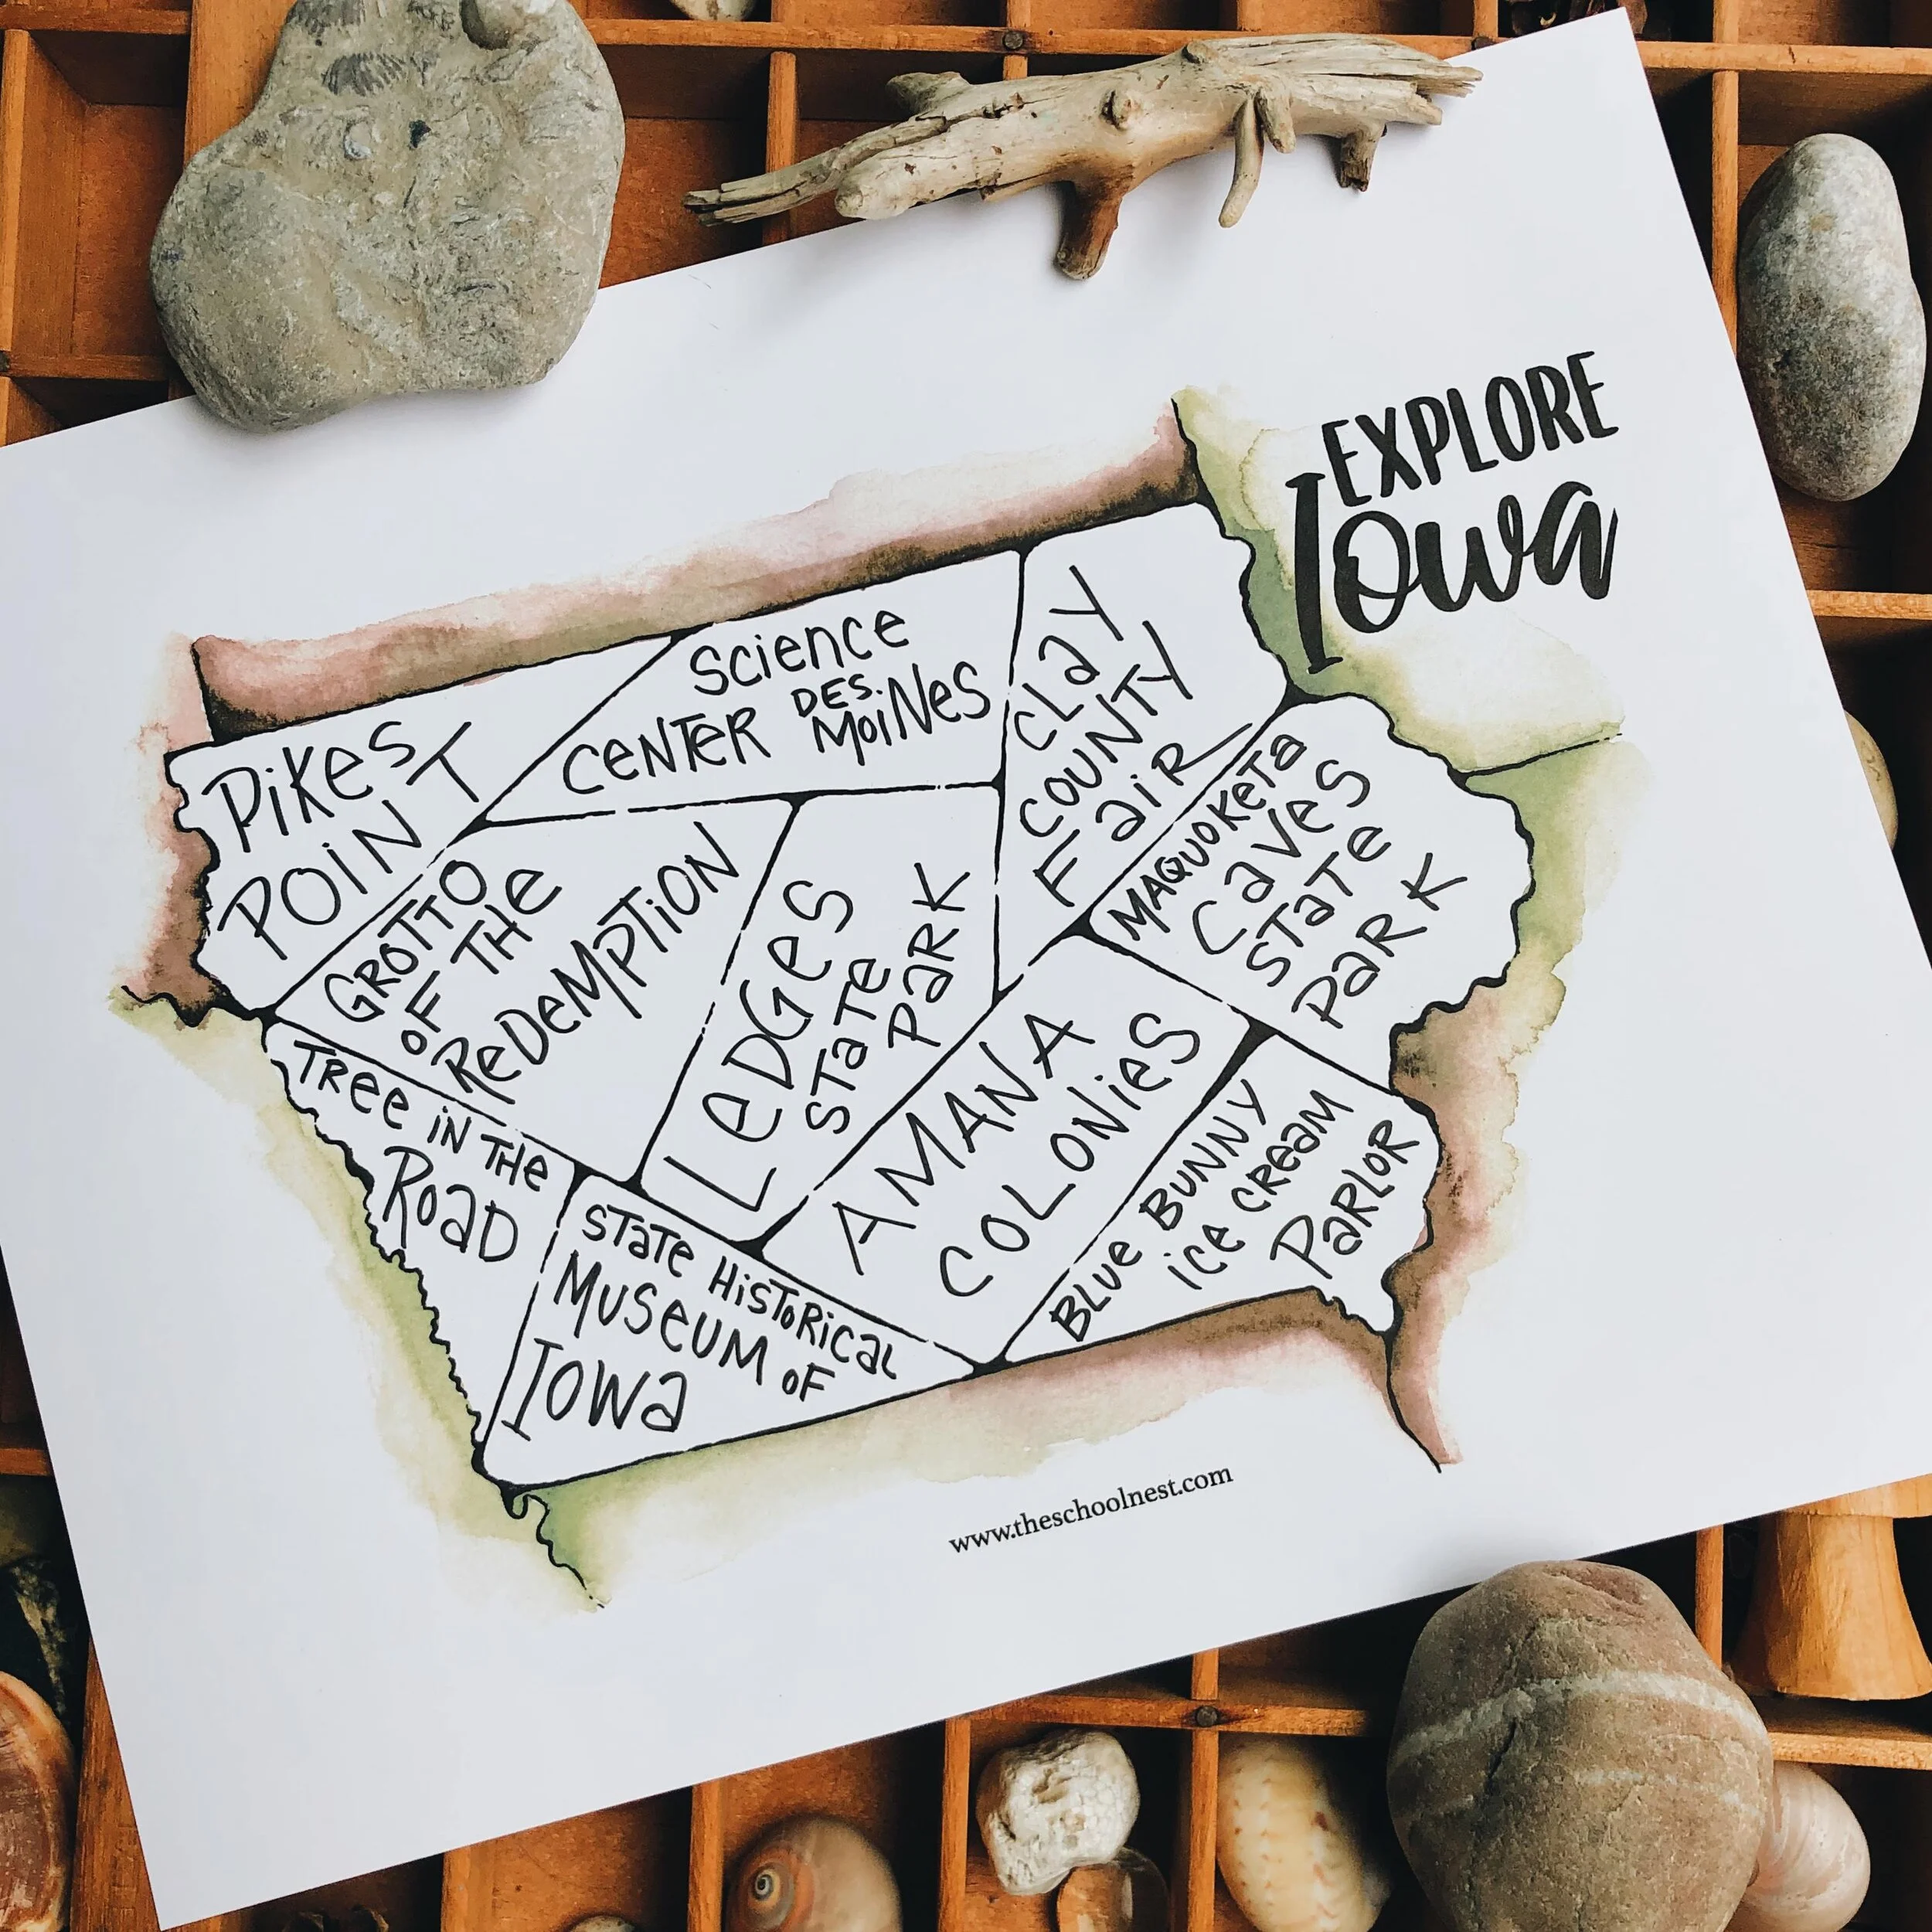 EXPLORE
Iowa
PiKes
POINT
Science
CENTER DES.
MOINES
CLAY
COUNTY
FaiR
MAQUOKETA
Caves
STATE
PARK
GROTTO
OF THE
ReDeMPTION
LeDGes
STATE
PARK
AMANA
COLONies
TRee iN THe
ROAD
STATE HiSTORicaL
MUSeUM OF
IOWa
BLUe BUNNY
ice cReaM
PaRLOR
www.theschoolnest.com